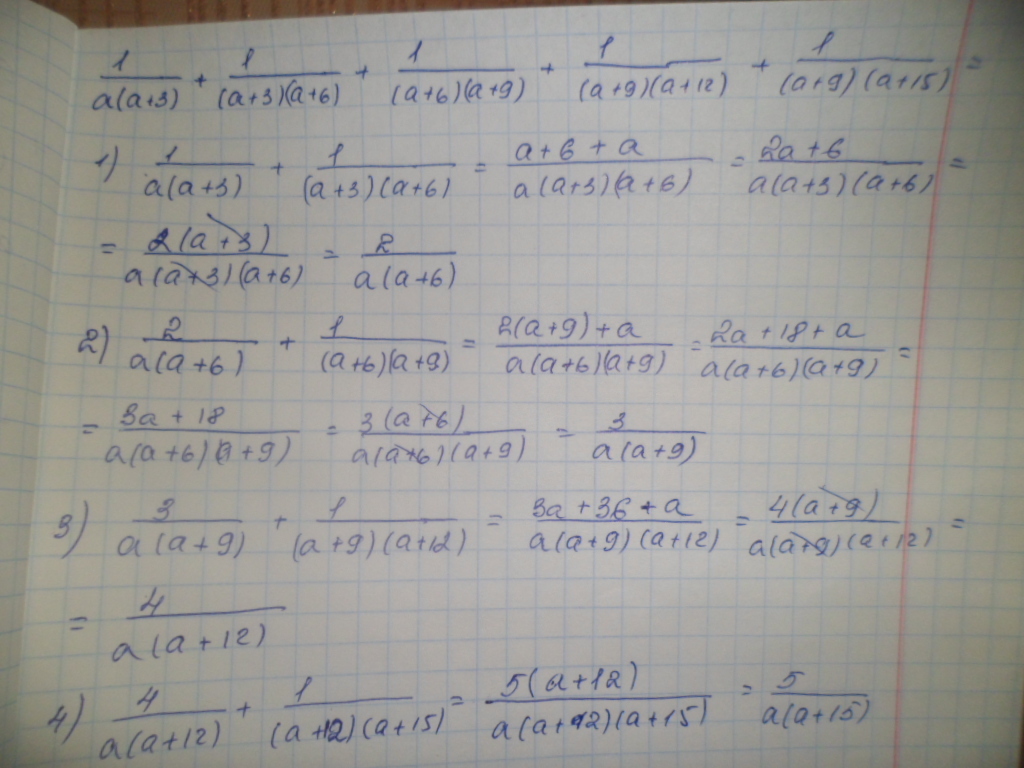 1/(a(a+3)) + 1/((a+3)(a+6)) + 1/((a+6)(a+9)) + 1/((a+9)(a+12)) + 1/((a+9)(a+15)) =
1) 1/(a(a+3)) + 1/((a+3)(a+6)) = (a+6+a)/(a(a+3)(a+6)) = (2a+6)/(a(a+3)(a+6)) =
= 2(a+3)/(a(a+3)(a+6)) = 2/(a(a+6))
2) 2/(a(a+6)) + 1/((a+6)(a+9)) = (2(a+9)+a)/(a(a+6)(a+9)) = (2a+18+a)/(a(a+6)(a+9)) =
= (3a+18)/(a(a+6)(a+9)) = 3(a+6)/(a(a+6)(a+9)) = 3/(a(a+9))
3) 3/(a(a+9)) + 1/((a+9)(a+12)) = (3a+36+a)/(a(a+9)(a+12)) = 4(a+9)/(a(a+9)(a+12)) =
= 4/(a(a+12))
4) 4/(a(a+12)) + 1/((a+12)(a+15)) = 5(a+12)/(a(a+12)(a+15)) = 5/(a(a+15))